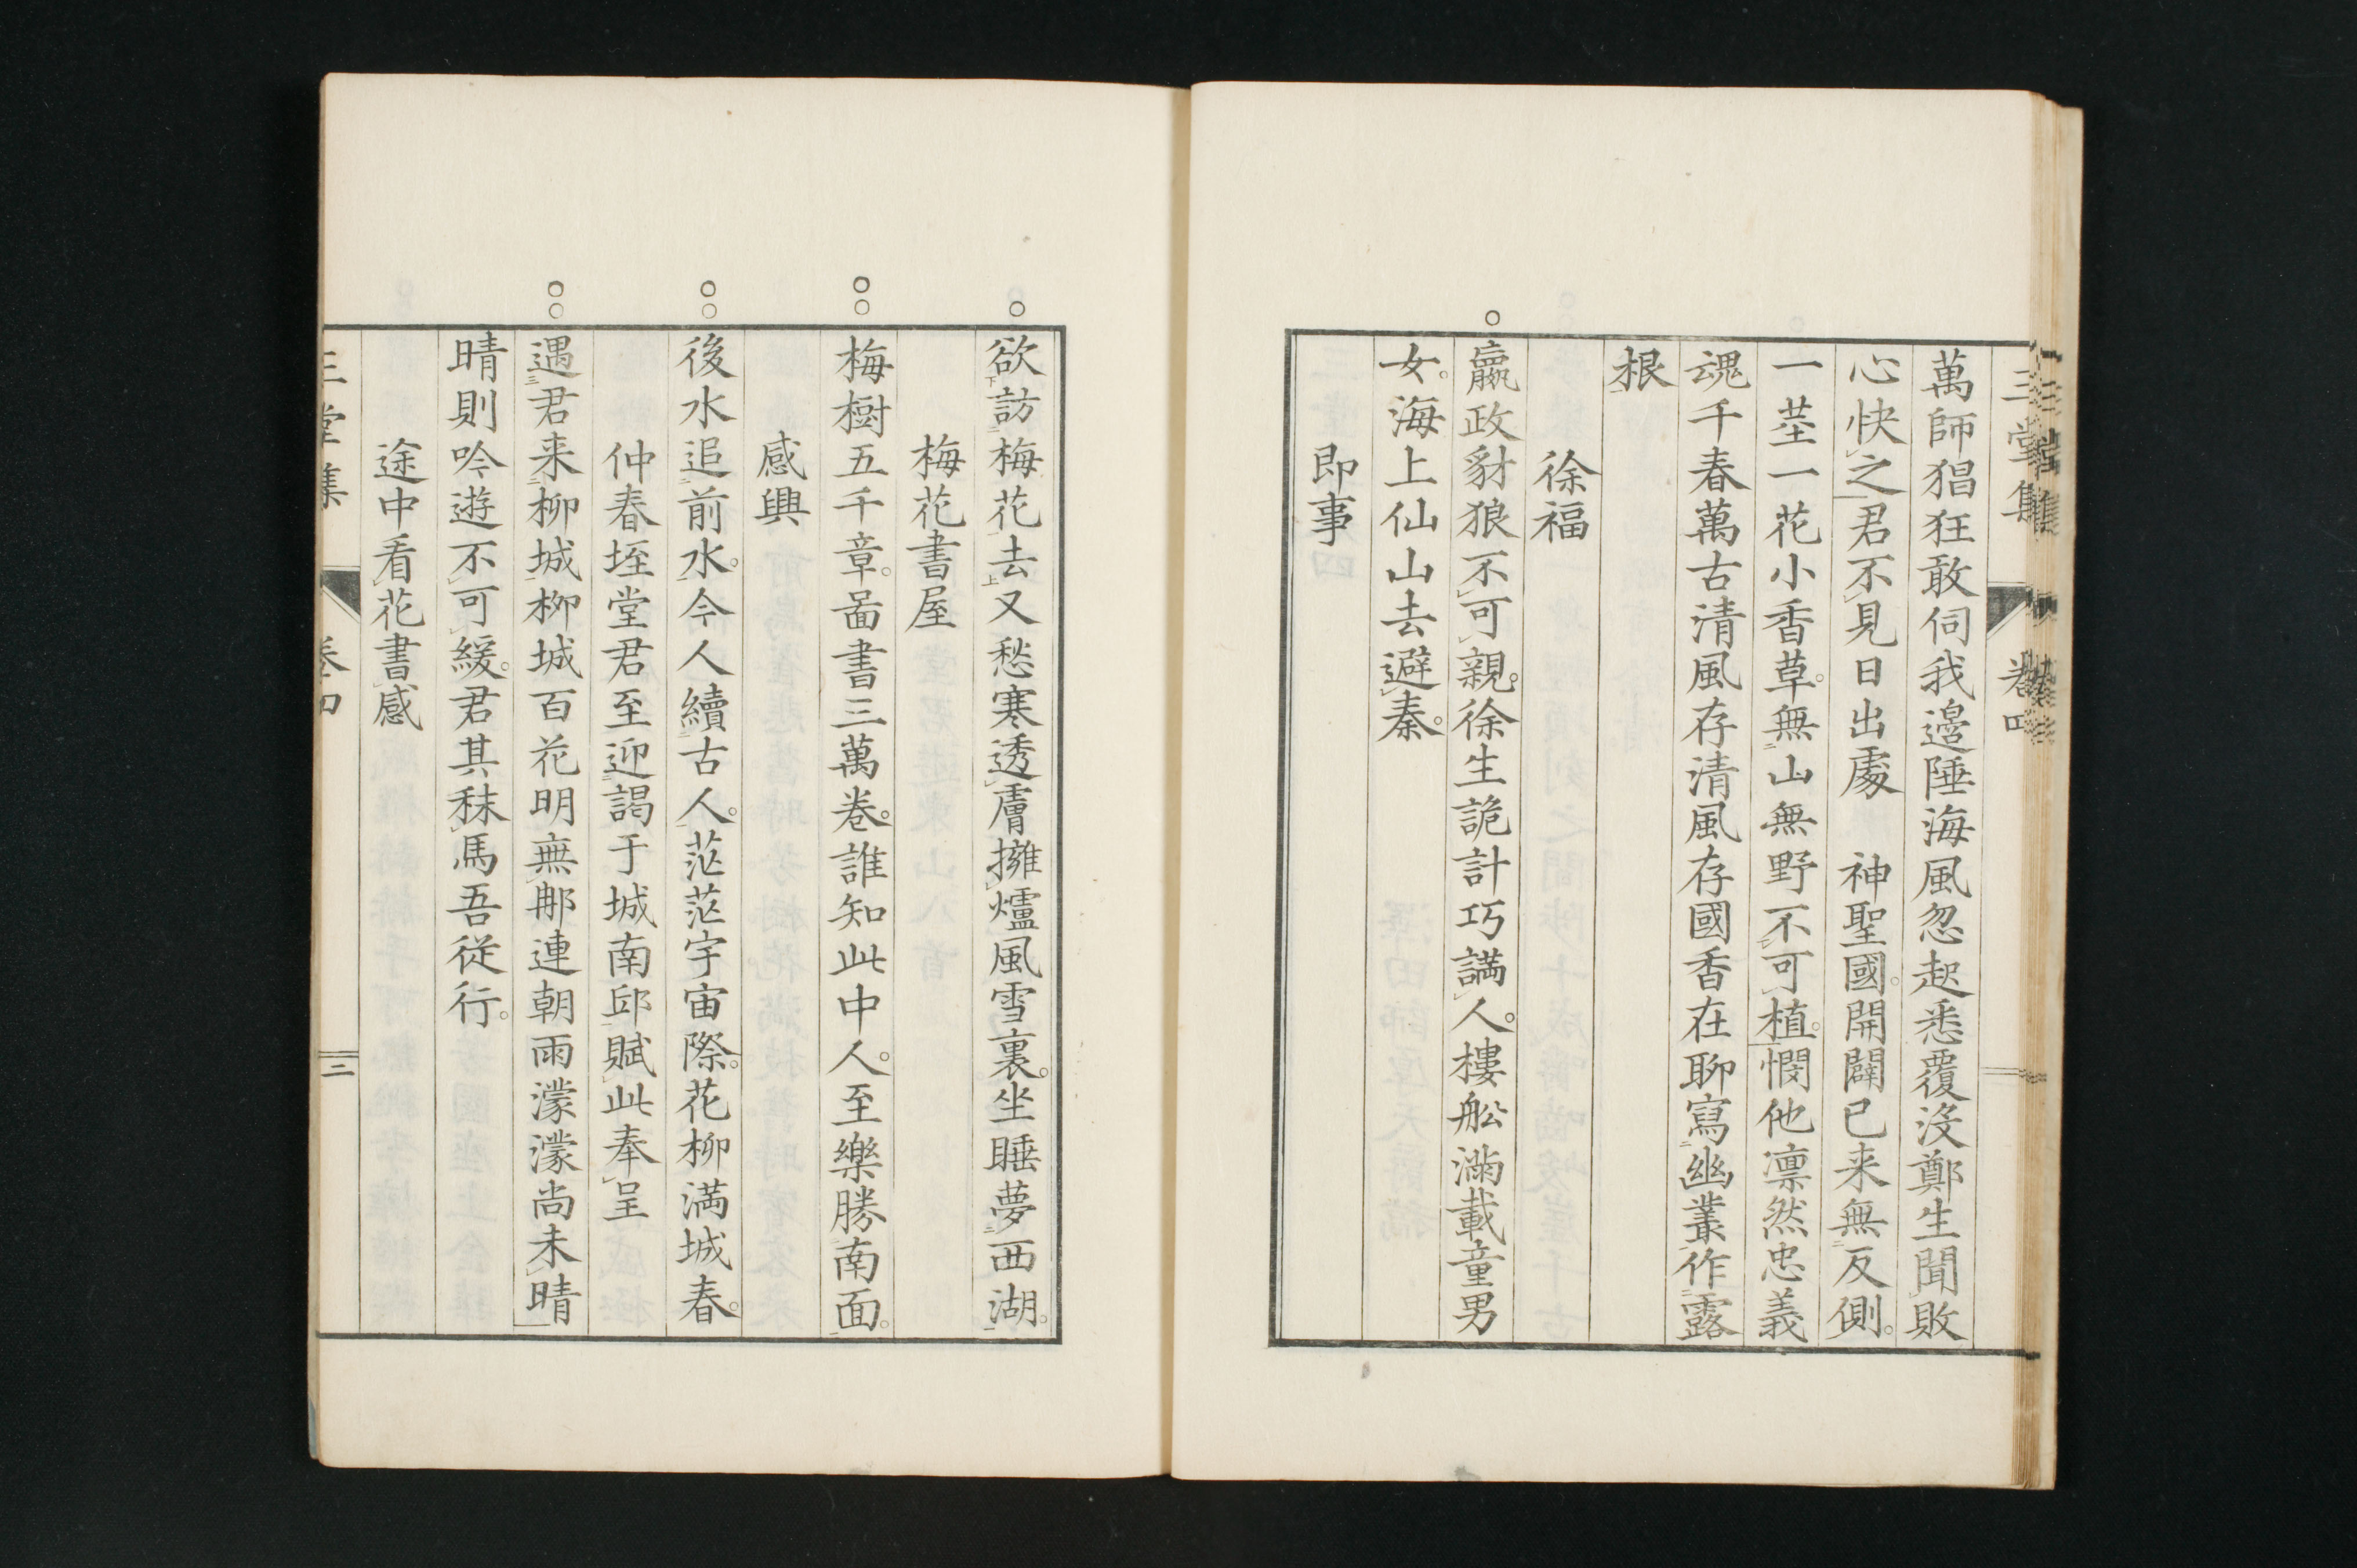 三堂集 卷四
萬師猖狂敢伺我邊陲海風忽起悉覆没鄭生聞敗
心快之君不見日出處　神聖國。開闢已来無反側。
一莖一花小香草。無山無野不可植。憫他凛然忠義
魂千春萬古清風存清風存國香在聊寫幽叢作露
根
徐福
嬴政豺狼不可親。徐生詭計巧謾人。樓舩滿載童男
女。海上仙山去避秦。
即事
欲訪梅花去又愁寒透膚擁爐風雪裏。坐睡夢西湖。
梅花書屋
梅樹五千章。啚書三萬卷。誰知此中人。至樂勝南面。
感興
後水追前水。今人續古人。茫茫宇宙際。花柳満城春。
仲春垤堂君至迎謁于城南邱賦此奉呈
遇君来柳城柳城百花明無那連朝雨濛濛尚未晴
晴則吟遊不可緩。君其秣馬吾從行。
途中看花書感
三堂集 卷四 三